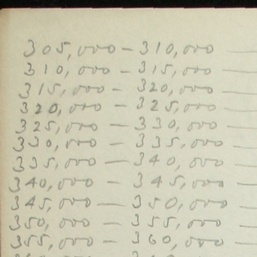 305,000 – 310,000 —
310,000 – 315,000 —
315,000 – 320,000 —
320,000 – 325,000 —
325,000 – 330,000 —
330,000 – 335,000 —
335,000 – 340,000 —
340,000 – 345,000 —
345,000 – 350,000 —
350,000 – 355,000 —
355,000 – 360,000 —